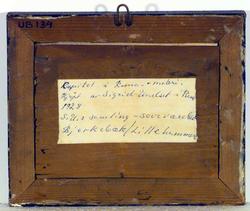 UB 134
Kapitol i Roma - maleri.
Kjøpt av Sigrid Undset i Roma
1928
S.U.s samling - soveværelset
Bjerkebæk/Lillehammer